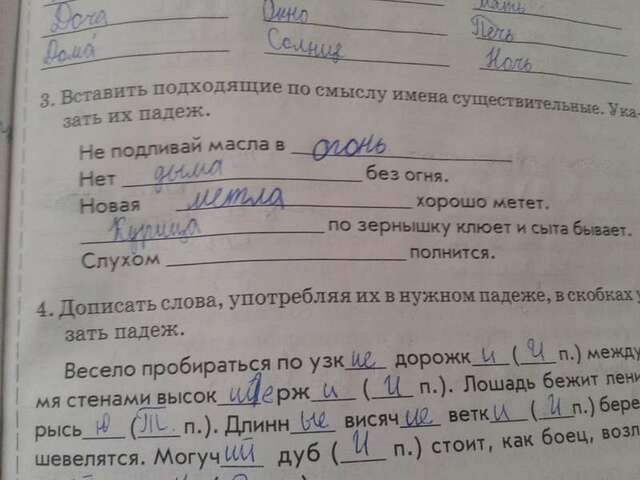 мать
Доча Окно Печь
Дома Солнце Ночь
3. Вставить подходящие по смыслу имена существительные. Ука-
зать их падеж.
Не подливай масла в огонь
Нет дыма без огня.
Новая метла хорошо метет.
Курица по зернышку клюет и сыта бывает.
Слухом полнится.
4. Дописать слова, употребляя их в нужном падеже, в скобках
зать падеж.
Весело пробираться по узкие дорожки (И п.) между
мя стенами высок ерж и (И п.). Лошадь бежит лени
рысью (Т. п.). Длинные висячие ветки (И п.) бере
шевелятся. Могучий дуб (И п.) стоит, как боец, возл